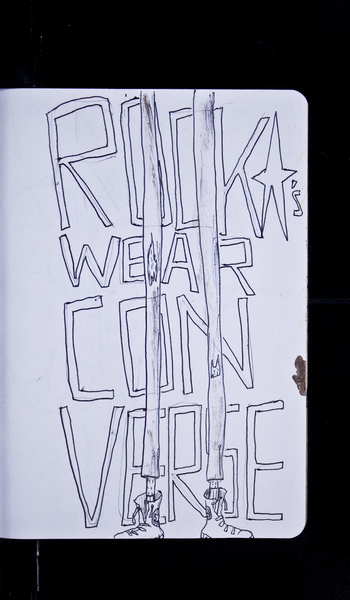 ROCK★'s
WEAR
CON
VERSE